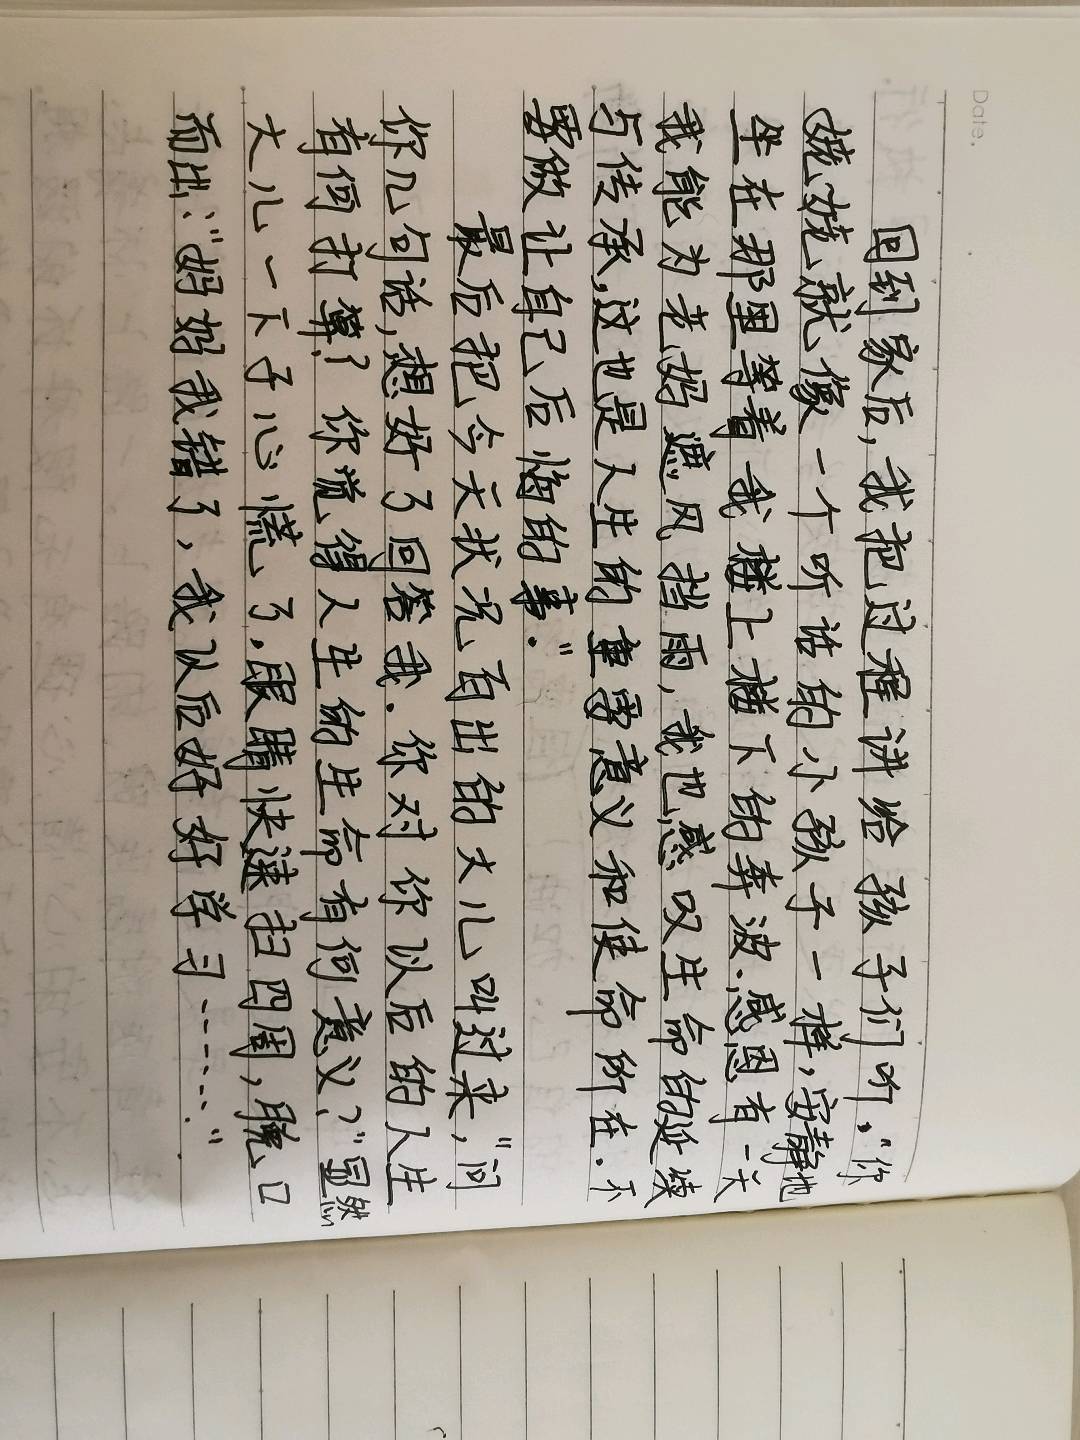 Date.
回到家后，我把过程讲给孩子们听，“你
姥姥就像一个听话的小孩子一样，安静地
坐在那里等着我楼上楼下的奔波。感恩有一天
我能为老妈遮风挡雨，我也感叹生命的延续
与传承，这也是人生的重要意义和使命所在。不
要做让自己后悔的事。”
最后把今天状况百出的大儿叫过来，“问
你几句话，想好了回答我。你对你以后的人生
有何打算？你觉得人生的生命有何意义？”显然
大儿一下子心慌了，眼睛快速扫四周，脱口
而出：“妈妈我错了，我以后好好学习……”